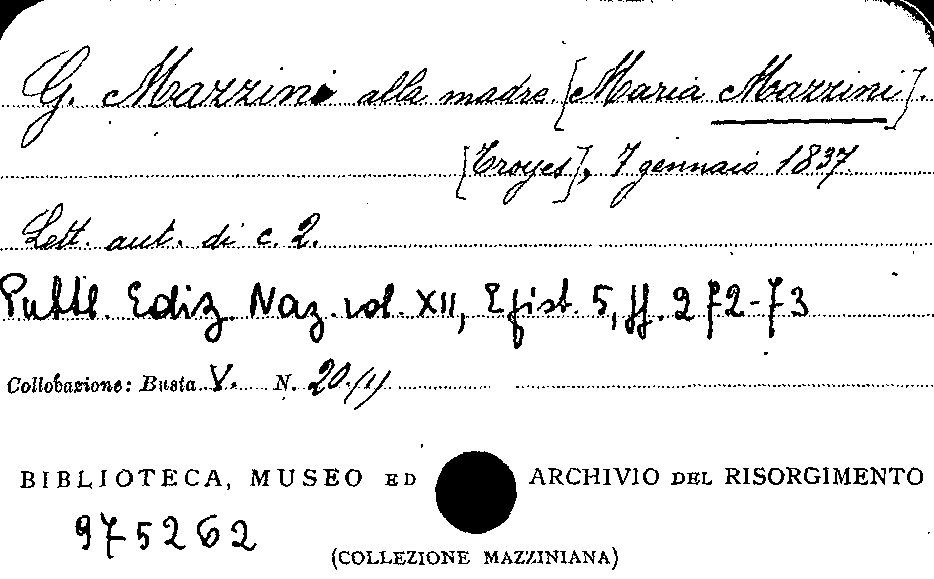 G. Mazzini alla madre [Maria Mazzini].
[Troyes], 7 gennaio 1837.
Lett. aut. di c. 2.
Pubbl. Ediz. Naz. vol. XII, Epist. 5, pp. 272-73
Collocazione: Busta V. N. 20/1)
BIBLIOTECA, MUSEO ED ARCHIVIO DEL RISORGIMENTO
975262
(COLLEZIONE MAZZINIANA)